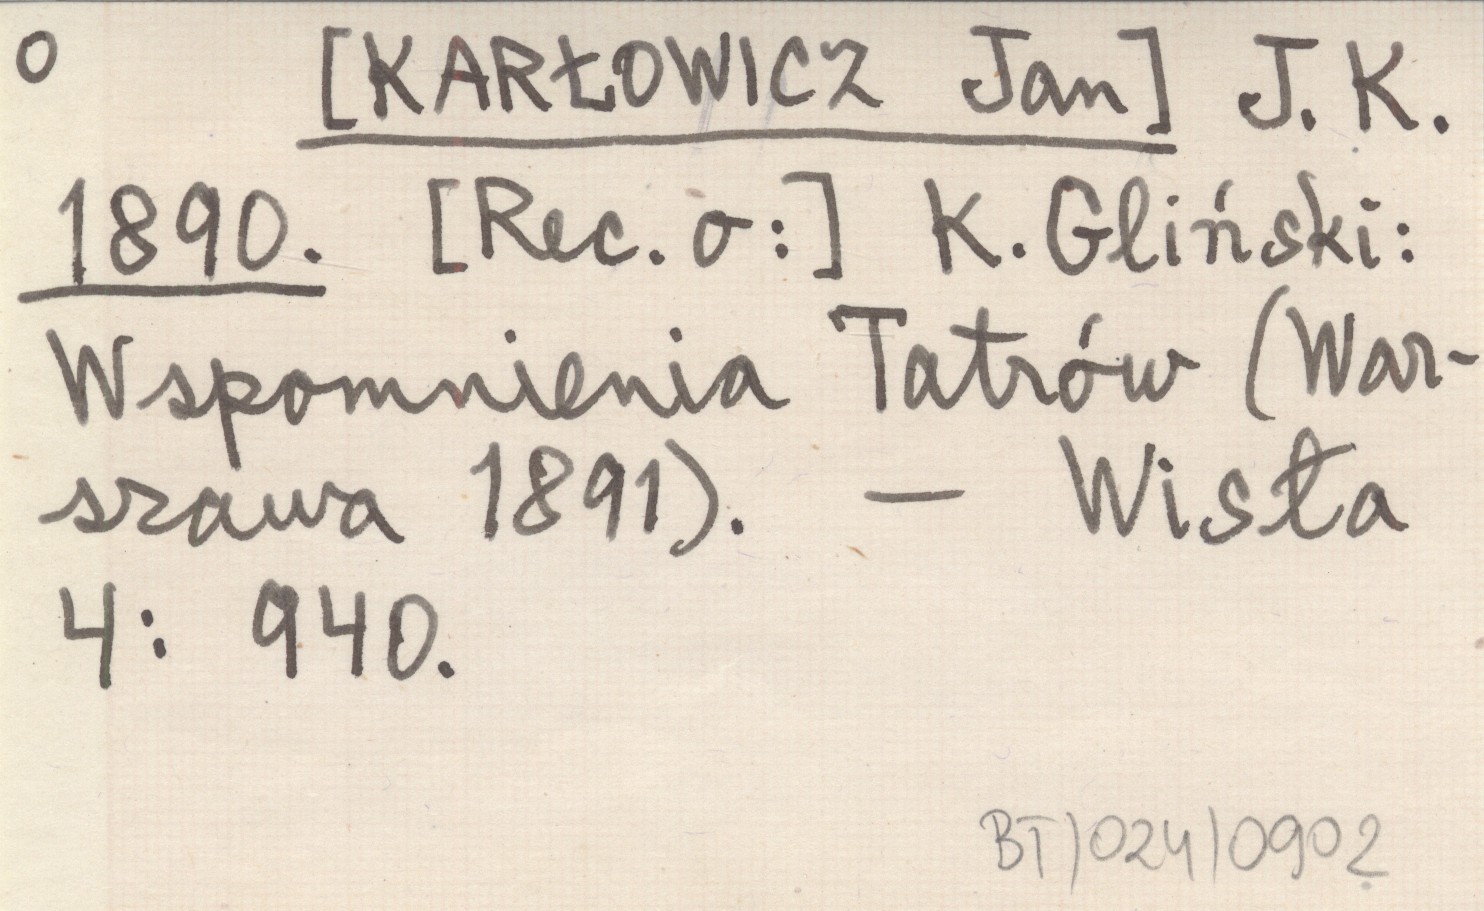 o [KARŁOWICZ Jan] J. K.
1890. [Rec. o:] K. Gliński:
Wspomnienia Tatrów (War-
szawa 1891). — Wisła
4: 940.
BT/024/0902